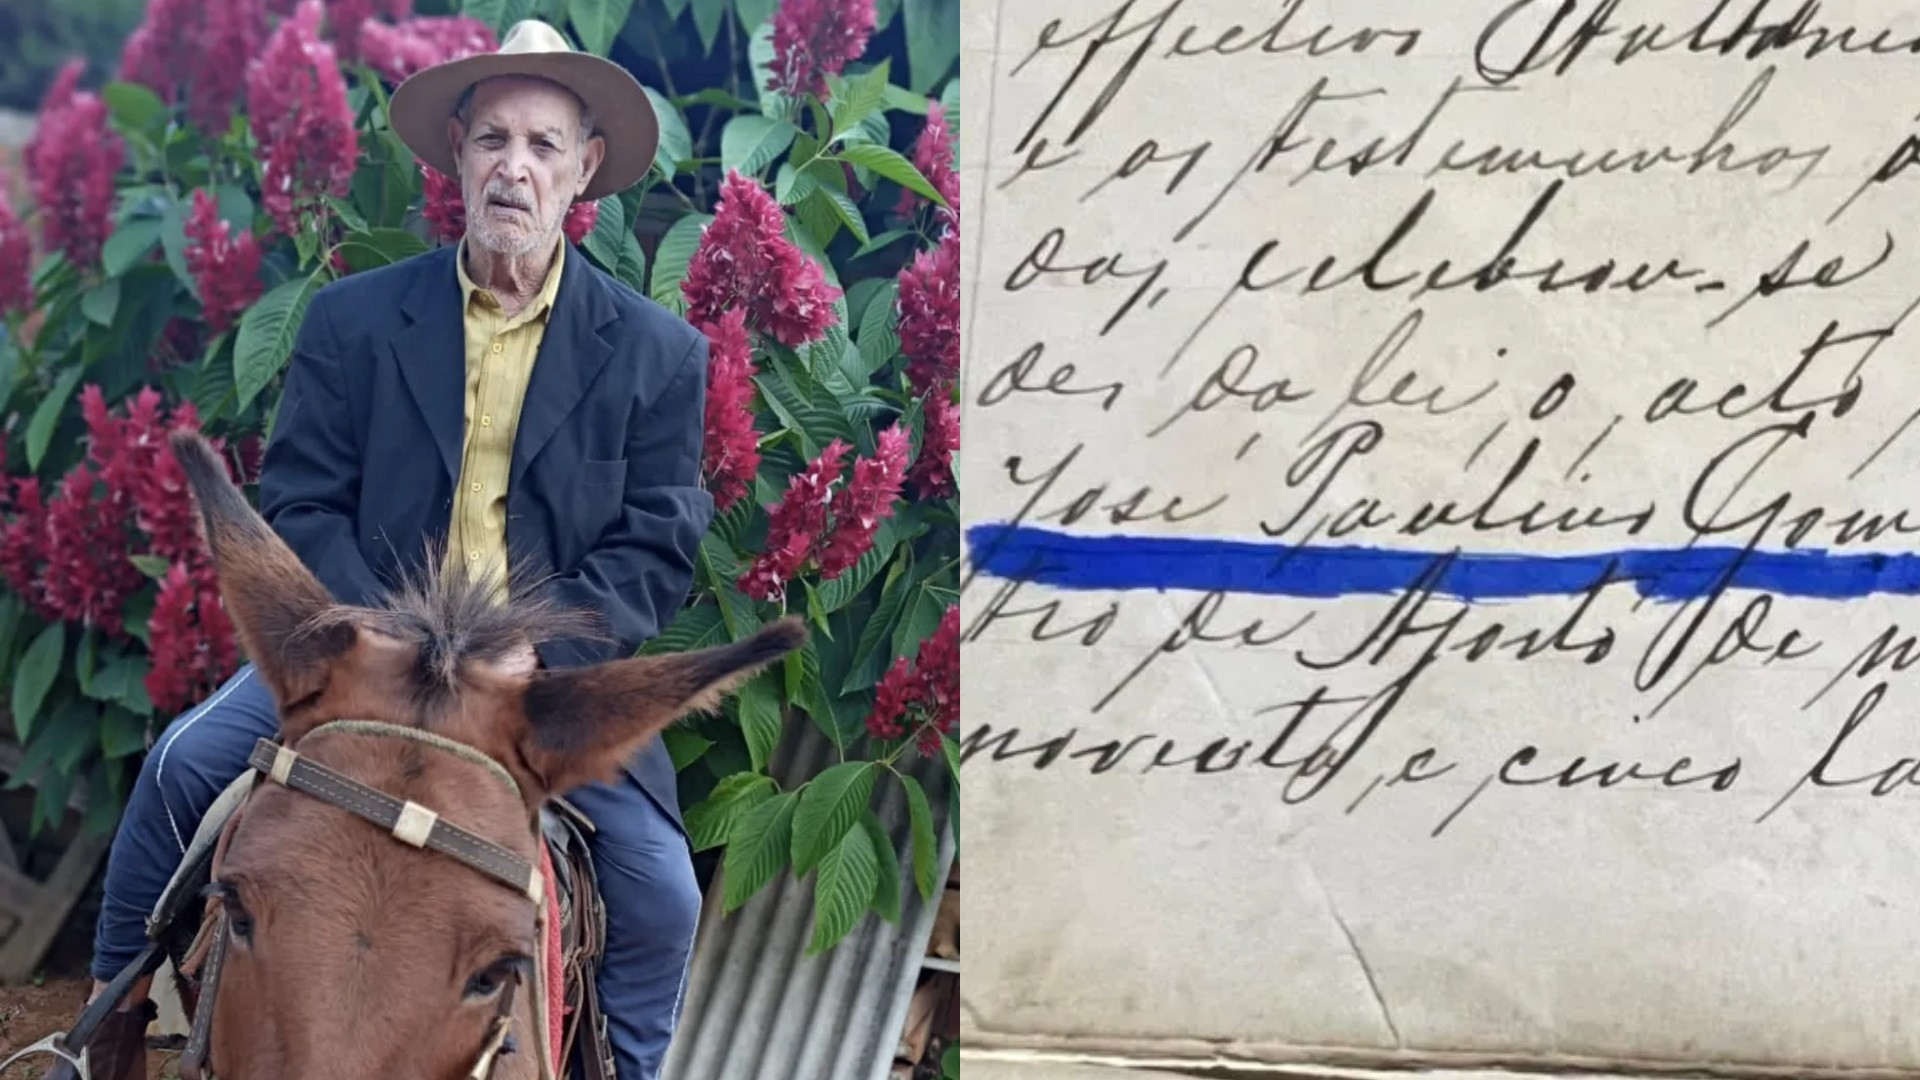 effectivo
e as testemunhas
das, celebrou-se
des da lei o acto
José Paulino Gom
tro de Agosto de m
noventa e cinco la